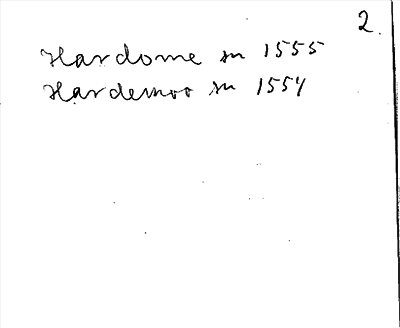 2.
Hardome sn 1555
Hardemoo sn 1554